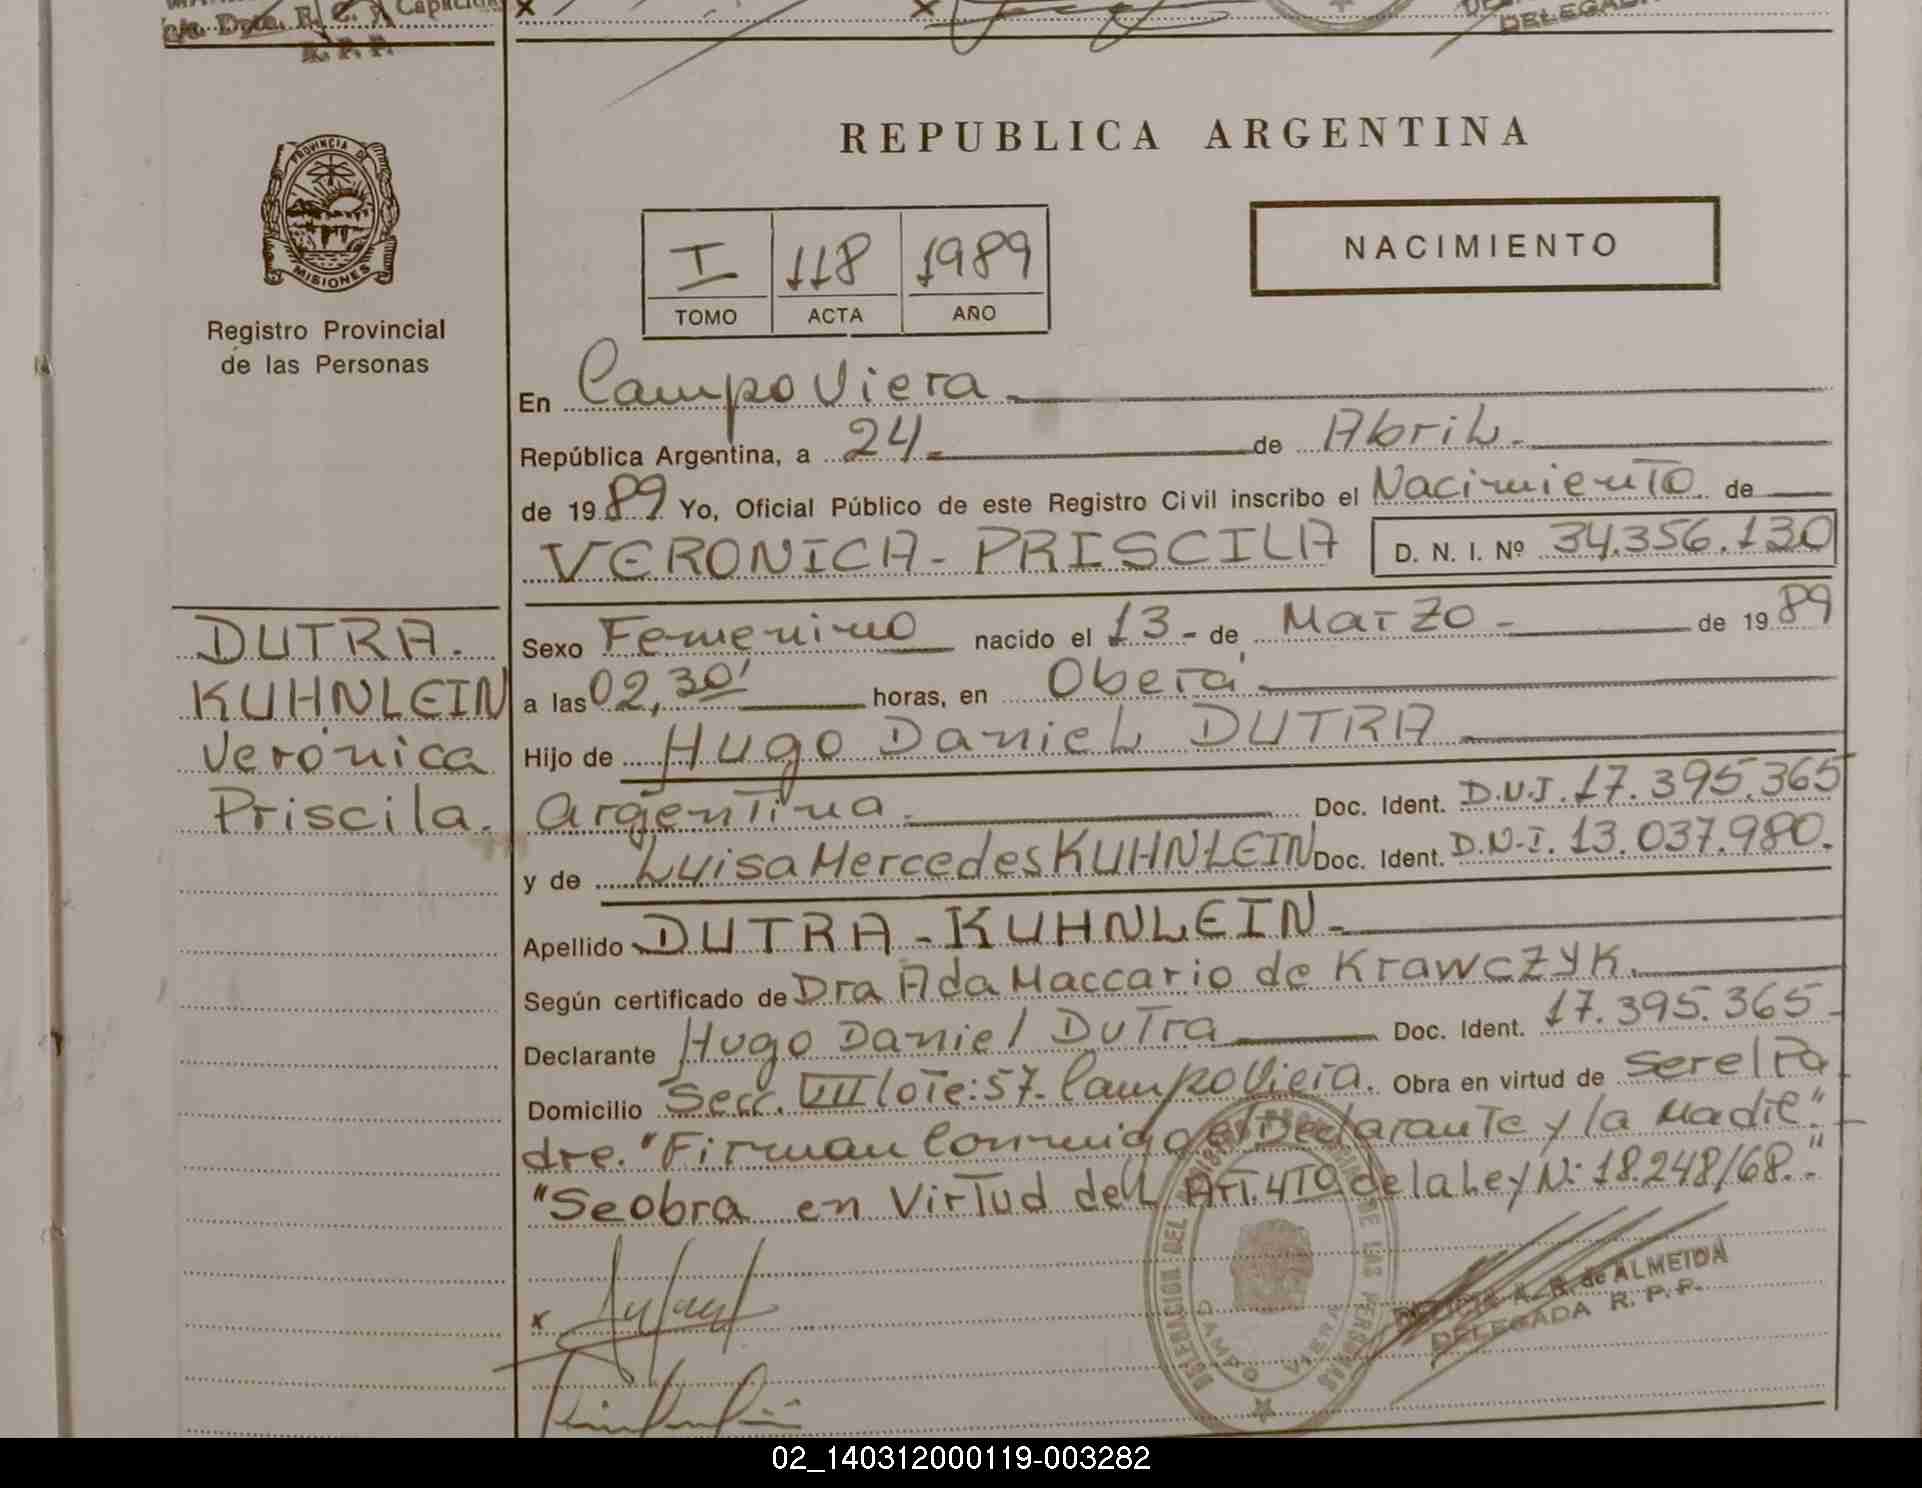 R. P. P.
DELEGADA
PROVINCIA DE
MISIONES
Registro Provincial
de las Personas
REPUBLICA ARGENTINA
I 118 1989
TOMO ACTA AÑO
NACIMIENTO
En Campo Viera
República Argentina, a 24 de Abril
de 1989 Yo, Oficial Público de este Registro Civil inscribo el Nacimiento de
VERONICA - PRISCILA D. N. I. Nº 34.356.130
DUTRA.
KUHNLEIN
Verónica
Priscila.
Sexo Femenino nacido el 13 - de Marzo - de 1989
a las 02,30' horas, en Oberá
Hijo de Hugo Daniel DUTRA
Argentina. Doc. Ident. D.N.I. 17.395.365
y de Luisa Mercedes KUHNLEIN Doc. Ident. D.N.I. 13.037.980.
Apellido DUTRA - KUHNLEIN -
Según certificado de Dra Ada Maccario de Krawczyk.
Declarante Hugo Daniel Dutra Doc. Ident. 17.395.365 -
Domicilio Secc. VIII lote: 57 - Campo Viera. Obra en virtud de ser el Pa
dre. "Firman Conmigo el Declarante y la Madre"
"Se obra en Virtud del Art. 4to de la Ley Nº 18.248/68."
x
DELEGACION DEL REGISTRO PROVINCIAL DE LAS PERSONAS
CAMPO VIERA
A. R. de ALMEIDA
DELEGADA R. P. P.
02_140312000119-003282